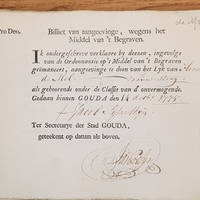 Pro Deo.
Billiet van aangeevinge, wegens het
Middel van 't Begraven.
Ik ondergeschreve verklaare by deezen, ingevolge
van de Ordonnantie op 't Middel van 't Begraven
geëmaneert, aangeevinge te doen van het Lyk van
de Mol
als gehoorende onder de Classis van d' onvermogende.
Gedaan binnen GOUDA, den 14 1775
Jacob
Ter Secretarye der Stad GOUDA,
geteekent op datum als boven.